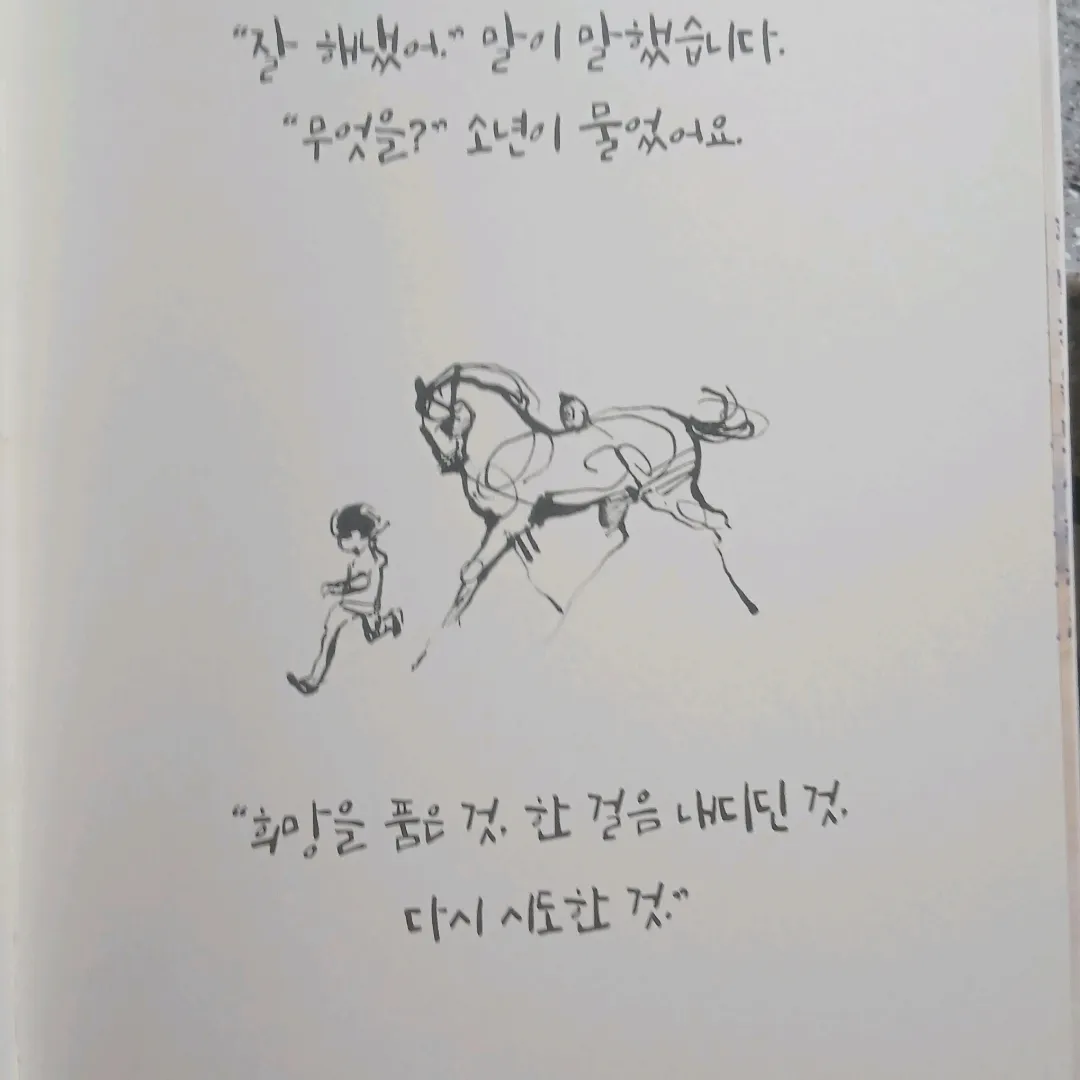 “잘 해냈어.” 말이 말했습니다.
“무엇을?” 소년이 물었어요.
“희망을 품은 것. 한 걸음 내디딘 것.
다시 시도한 것.”